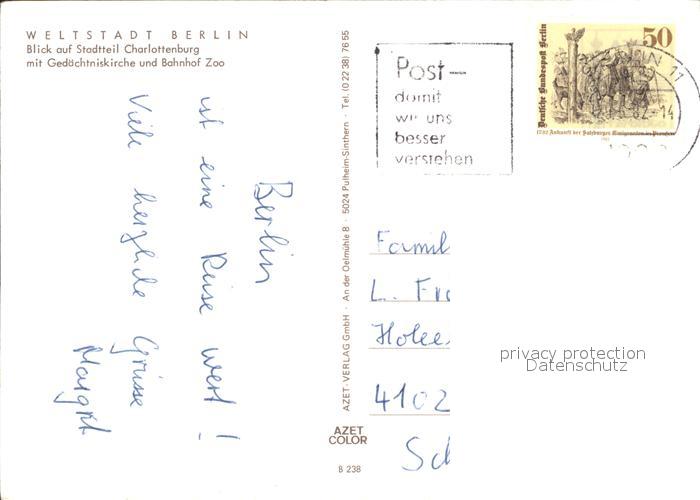 WELTSTADT BERLIN
Blick auf Stadtteil Charlottenburg
mit Gedächtniskirche und Bahnhof Zoo
Berlin
ist eine Reise wert!
Viele herzliche Grüsse
Margrit
AZET-VERLAG GmbH · An der Oelmühle 8 · 5024 Pulheim-Sinthern · Tel. (0 22 38) 76 55
AZET
COLOR
B 238
Post-
damit
wir uns
besser
verstehen
Deutsche Bundespost Berlin
50
1732 Ankunft der Salzburger Emigranten in Preußen
11
Famil
L. Fr
Holee
4102
Sch
privacy protection
Datenschutz